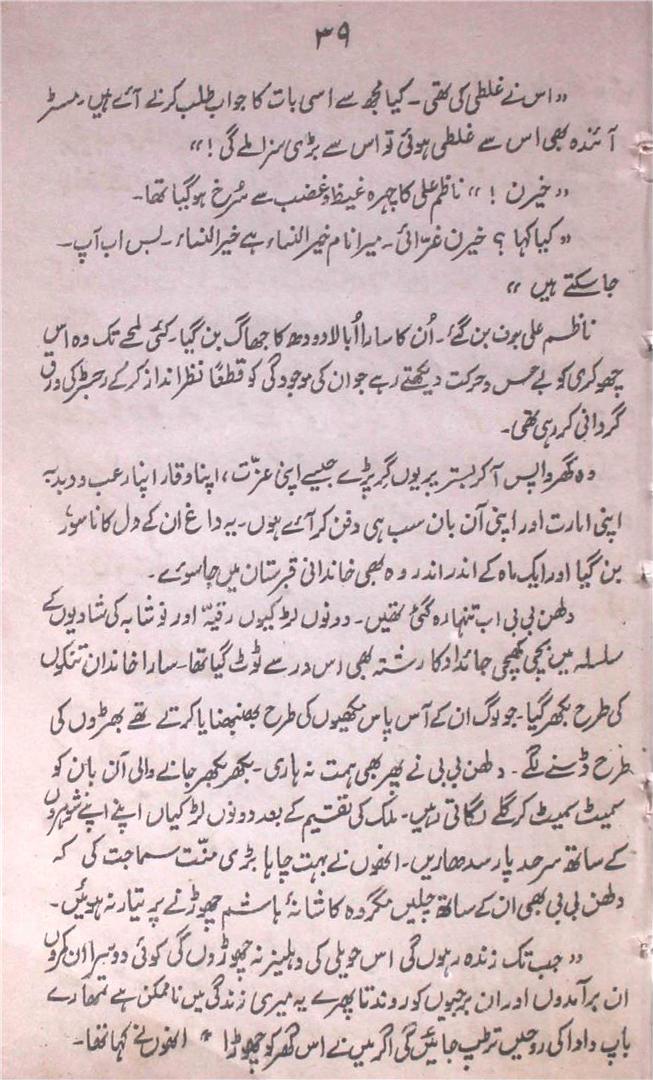 ۳۹
"اس نے غلطی کی تھی۔ کیا مجھ سے اسی بات کا جواب طلب کرنے آئے ہیں۔ مسٹر
آئندہ بھی اس سے غلطی ہوئی تو اس سے بڑی سزا ملے گی!"
"خیرن!" ناظم علی کا چہرہ غیظ و غضب سے سُرخ ہو گیا تھا۔
"کیا کہا؟ خیرن غرّائی۔ میرا نام خیر النساء ہے خیر النساء۔ بس اب آپ۔
جا سکتے ہیں"
ناظم علی بون بن گئے۔ اُن کا سارا اُبالا دودھ کا جھاگ بن گیا۔ کئی لمحے تک وہ اس
چھوکری کو بے حس و حرکت دیکھتے رہے جو ان کی موجودگی کو قطعاً نظر انداز کر کے رجسٹر کی ورق
گردانی کر رہی تھی۔
وہ گھر واپس آ کر بستر پر یوں گر پڑے جیسے اپنی عزّت، اپنا وقار اپنا رعب و دبدبہ
اپنی امارت اور اپنی آن بان سب ہی دفن کر آئے ہوں۔ یہ داغ ان کے دل کا ناسور
بن گیا اور ایک ماہ کے اندر اندر وہ بھی خاندانی قبرستان میں جا سوئے۔
دلھن بی بی اب تنہا رہ گئی تھیں۔ دونوں لڑکیوں رقیہ اور نوشابہ کی شادیوں کے
سلسلہ میں بچی کھچی جائداد کا رشتہ بھی اس در سے ٹوٹ گیا تھا۔ سارا خاندان تنکوں
کی طرح بکھر گیا۔ جو لوگ ان کے آس پاس مکھیوں کی طرح بھنبھنایا کرتے تھے بھڑوں کی
طرح ڈسنے لگے۔ دلھن بی بی نے پھر بھی ہمت نہ ہاری۔ بکھر بکھر جانے والی آن بان کو
سمیٹ سمیٹ کر گلے لگاتی رہیں۔ ملک کی تقسیم کے بعد دونوں لڑکیاں اپنے اپنے شوہروں
کے ساتھ سرحد پار سدھاریں۔ انھوں نے بہت چاہا بڑی منّت سماجت کی کہ
دلھن بی بی بھی ان کے ساتھ چلیں مگر وہ کاشانۂ ہاشم چھوڑنے پر تیار نہ ہوئیں۔
"جب تک زندہ رہوں گی اس حویلی کی دہلیز نہ چھوڑوں گی کوئی دوسرا ان کمروں
ان برآمدوں اور ان برجیوں کو روندتا پھرے یہ میری زندگی میں ناممکن ہے تمھارے
باپ دادا کی روحیں تڑپ جائیں گی اگر میں نے اس گھر کو چھوڑا" انھوں نے کہا تھا۔